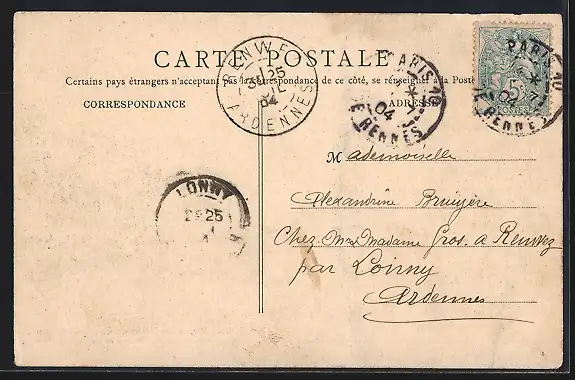 CARTE POSTALE
Certains pays étrangers n'acceptant pas la correspondance de ce côté, se renseigner à la Poste
CORRESPONDANCE
ADRESSE
PARIS 10
R. RENNES
04
PARIS 10
R. RENNES
04
5
POSTES
25
04
ARDENNES
LONNY
25
Mademoiselle
Alexandrine Bruyère
Chez Madame Gros. a Renwez
par Lonny
Ardennes